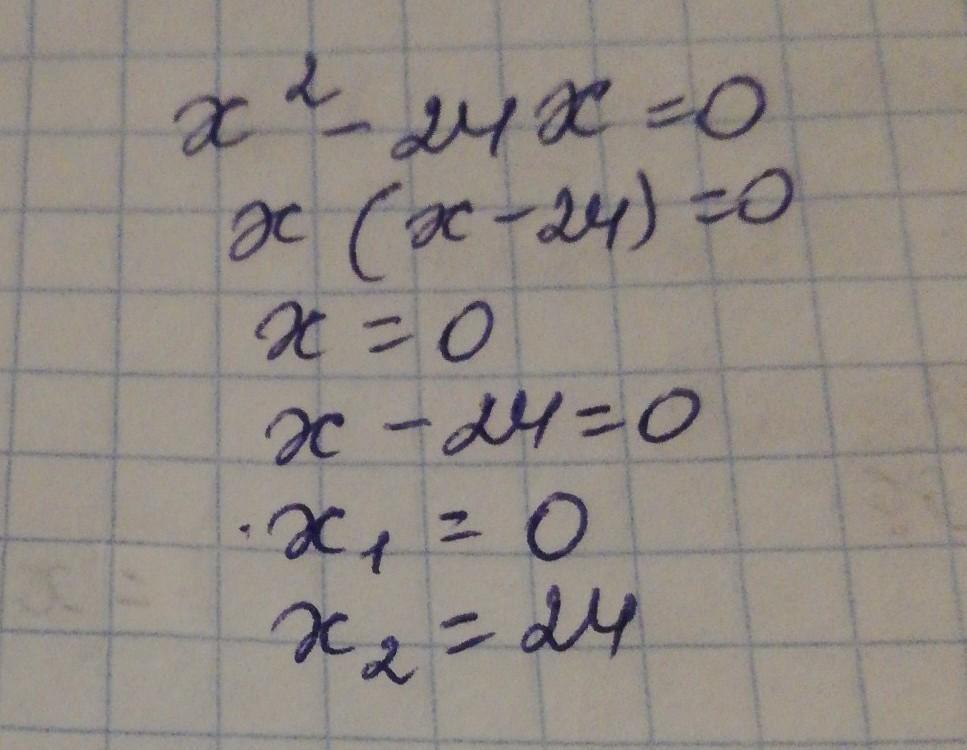 x² - 24x = 0
x (x - 24) = 0
x = 0
x - 24 = 0
x₁ = 0
x₂ = 24